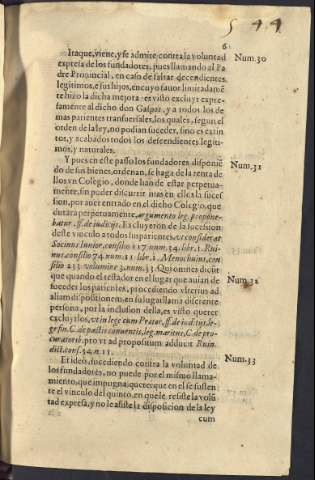 5 44
6
Itaque, viene, y se admite contra la voluntad
expresa de los fundadores, pues llamando al Pa
dre Prouincial, en caso de faltar decendientes
legitimos, e sus hijos, en cuyo fauor limitadamẽ
te hizo la dicha mejora: es visto excluyr expre-
samente al dicho don Gaspar, y a todos los de
mas parientes transuersales, los quales, segun el
orden de la ley, no podian suceder, sino es extin
tos, y acabados todos los descendientes legiti-
mos, y naturales.
Y pues en este passo los fundadores disponiẽ
do de sus bienes, ordenan, se haga de la renta de
llos vn Colegio, donde han de estar perpetua-
mente, sin poder discurrir mas en ellos la suces-
sion, por auer entrado en el dicho Colegio, que
durara perpetuamente, argumento leg. propone-
batur. ff. de iudicijs. Excluyeron de la sucession
deste vinculo a todos sus parientes, vt considerat
Socinus Iunior, consilio 117. num. 34. libr. 1. Rui-
nus, consilio 74. num. 11. libr. 2. Menochuius, con
silio 233. volumine 3. num. 13. Qui omnes dicũt
que quando el testador en el lugar que auian de
suceder los parientes, procediendo vlterius ad
aliam dispositionem, en su lugar llama diferente
persona, por la inclusion della, es visto querer
excluyrlos, vt in lege cum Prætor, ff. de iudicijs, le-
ge fin. C. de pactis conuentis, leg. maritus, C. de pro-
curatorib. pro vt ad propositum adducit Ruin.
dict. cons. 74. n. 11.
Et ideo, sucediendo contra la voluntad de
los fundadores, no puede por el mismo llama-
miento, que impugna, querer que en el se susten
te el vinculo del quinto, en quele resiste la volũ
tad expresa, y no le asiste la disposicion de la ley
cum
Num. 30
Num. 31
Num. 32
Num. 33